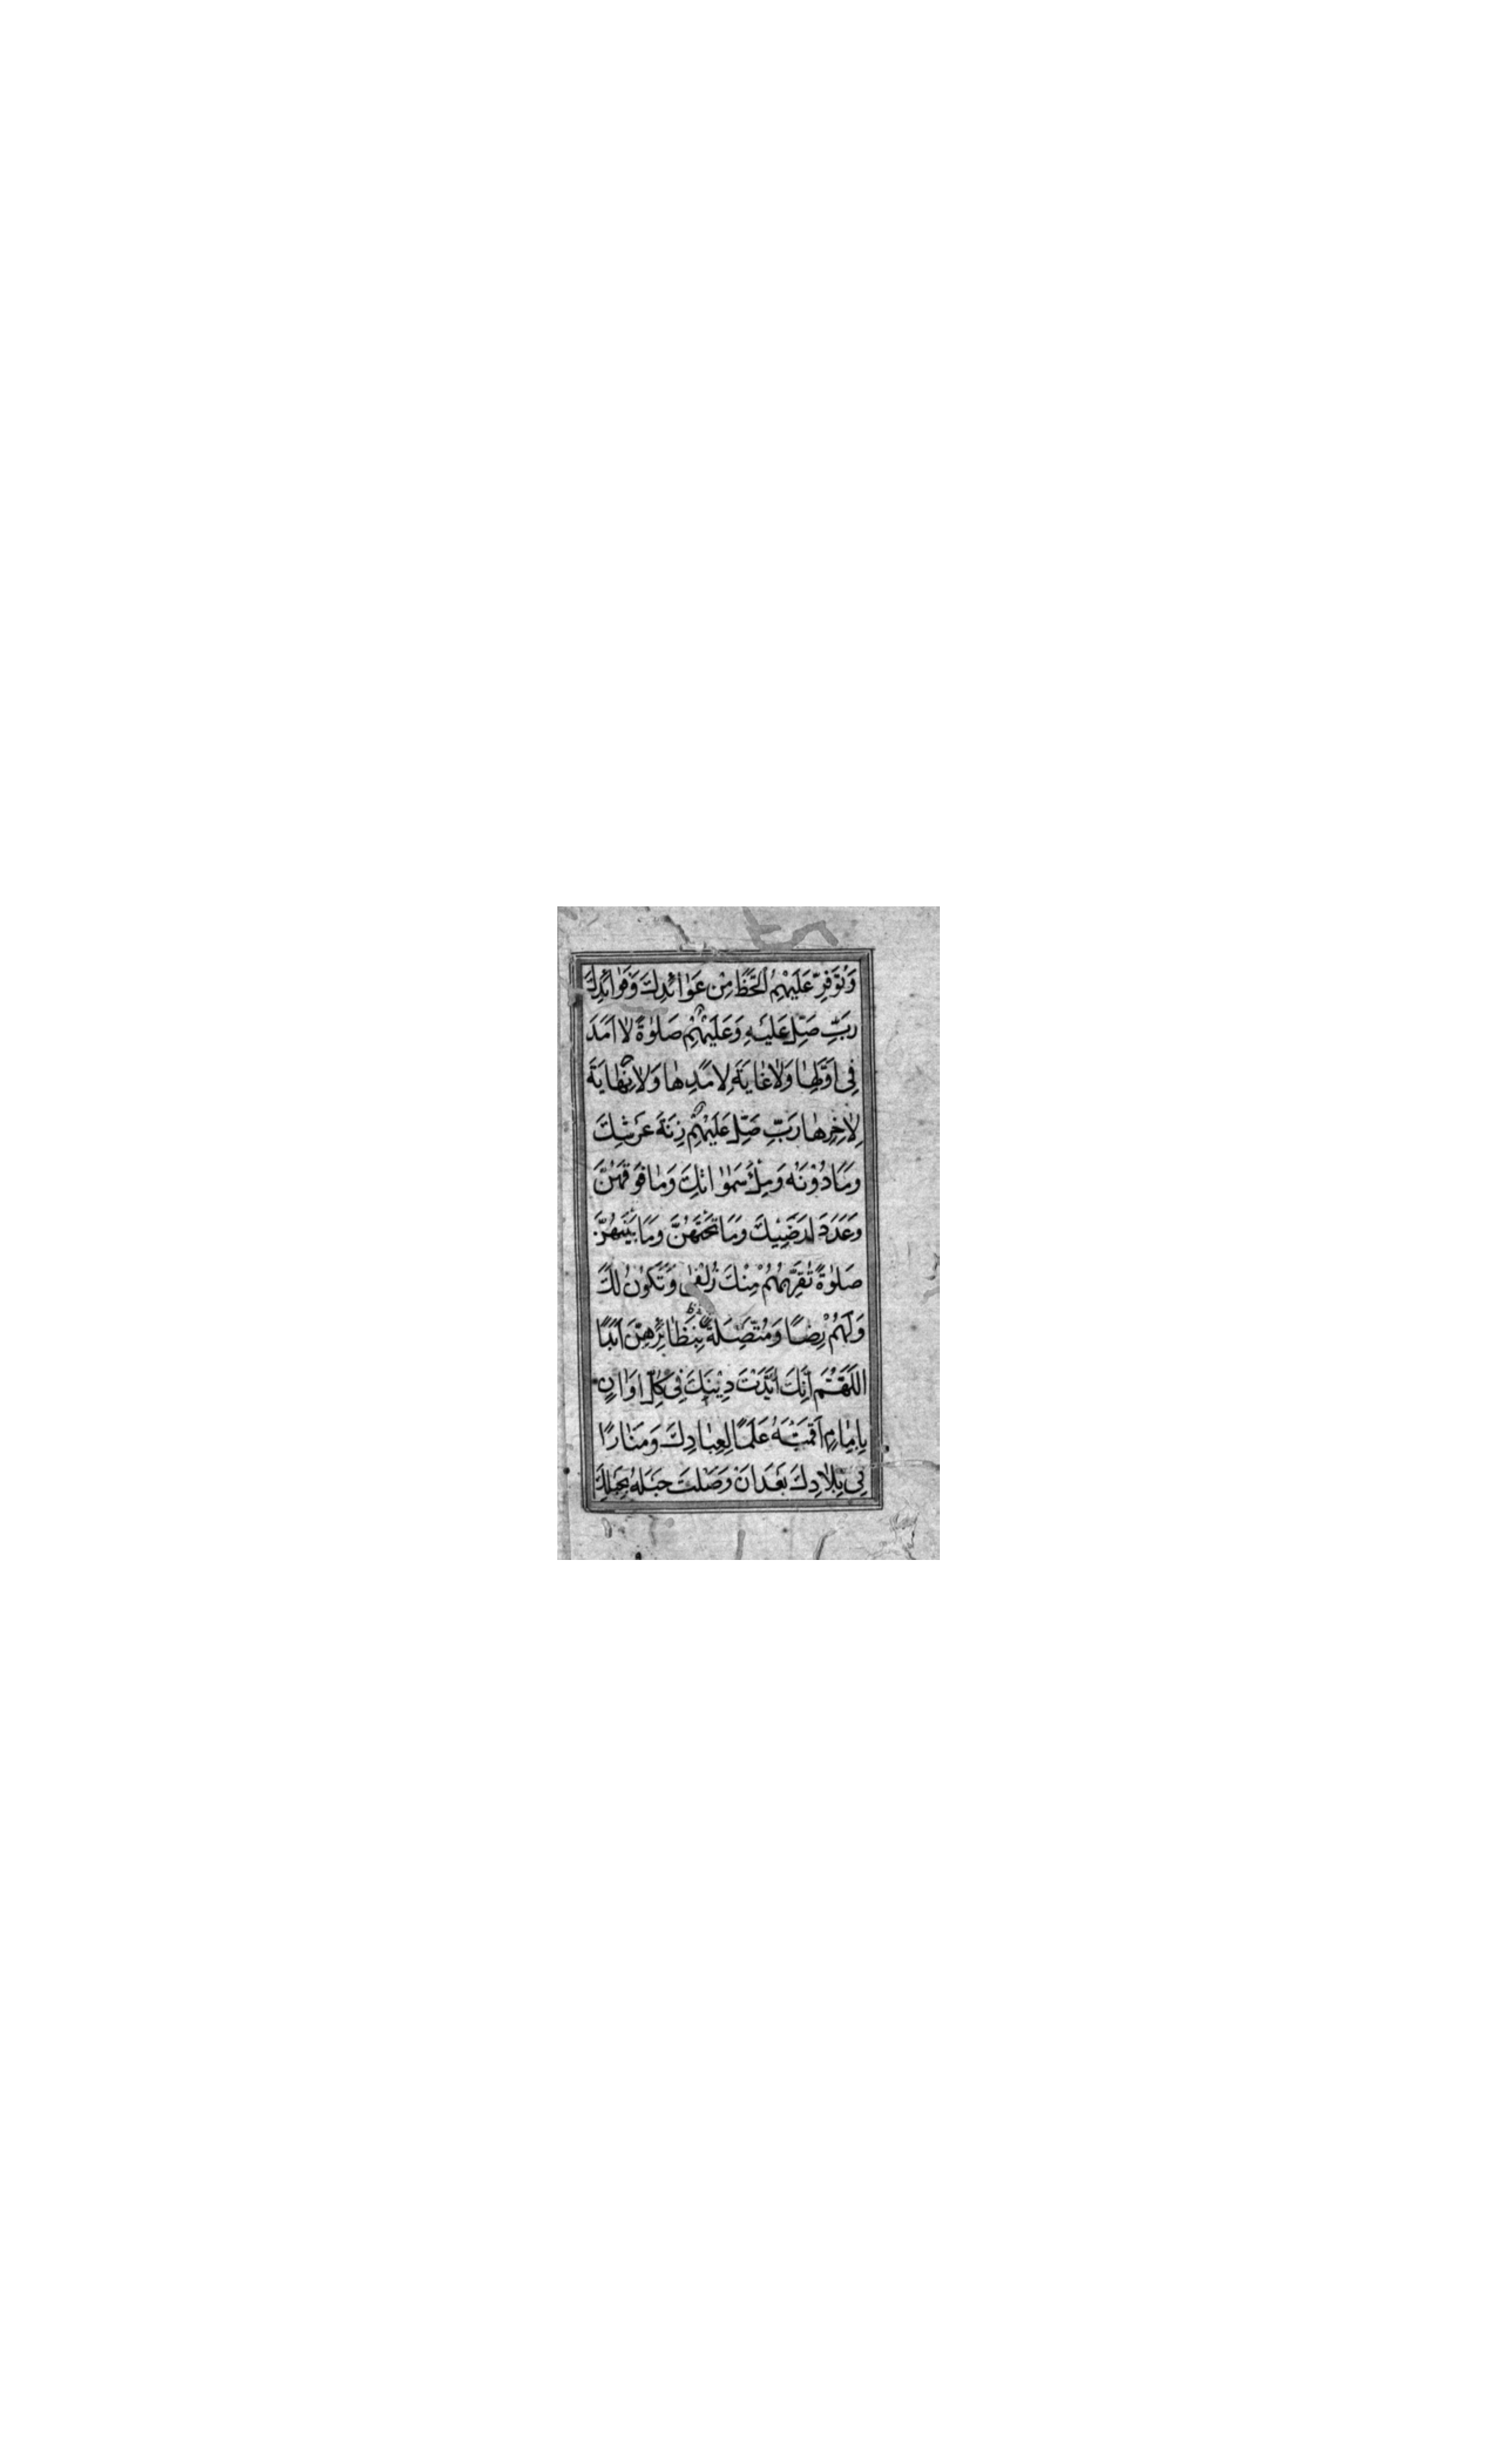 وَتُوَفِّرُ عَلَيْهِمُ الْحَظَّ مِنْ عَوَائِدِكَ وَفَوَائِدِكَ
رَبِّ صَلِّ عَلَيْهِ وَعَلَيْهِمْ صَلٰوةً لَا اَمَدَ
فِي اَوَّلِهَا وَلَا غَايَةَ لِاَمَدِهَا وَلَا نِهَايَةَ
لِاٰخِرِهَا رَبِّ صَلِّ عَلَيْهِمْ زِنَةَ عَرْشِكَ
وَمَا دُوْنَهُ وَمِلْأَ سَمٰوَاتِكَ وَمَا فَوْقَهُنَّ
وَعَدَدَ اَرَضِيْكَ وَمَا تَحْتَهُنَّ وَمَا بَيْنَهُنَّ
صَلٰوةً تُقَرِّبُهُمْ مِنْكَ زُلْفٰى وَتَكُوْنُ لَكَ
وَلَهُمْ رِضًا وَمُتَّصِلَةً بِنَظَائِرِهِنَّ اَبَدًا
اَللّٰهُمَّ اِنَّكَ اَيَّدْتَ دِيْنَكَ فِي كُلِّ اَوَانٍ
بِاِمَامٍ اَقَمْتَهُ عَلَمًا لِعِبَادِكَ وَمَنَارًا
فِي بِلَادِكَ بَعْدَ اَنْ وَصَلْتَ حَبْلَهُ بِحَبْلِكَ